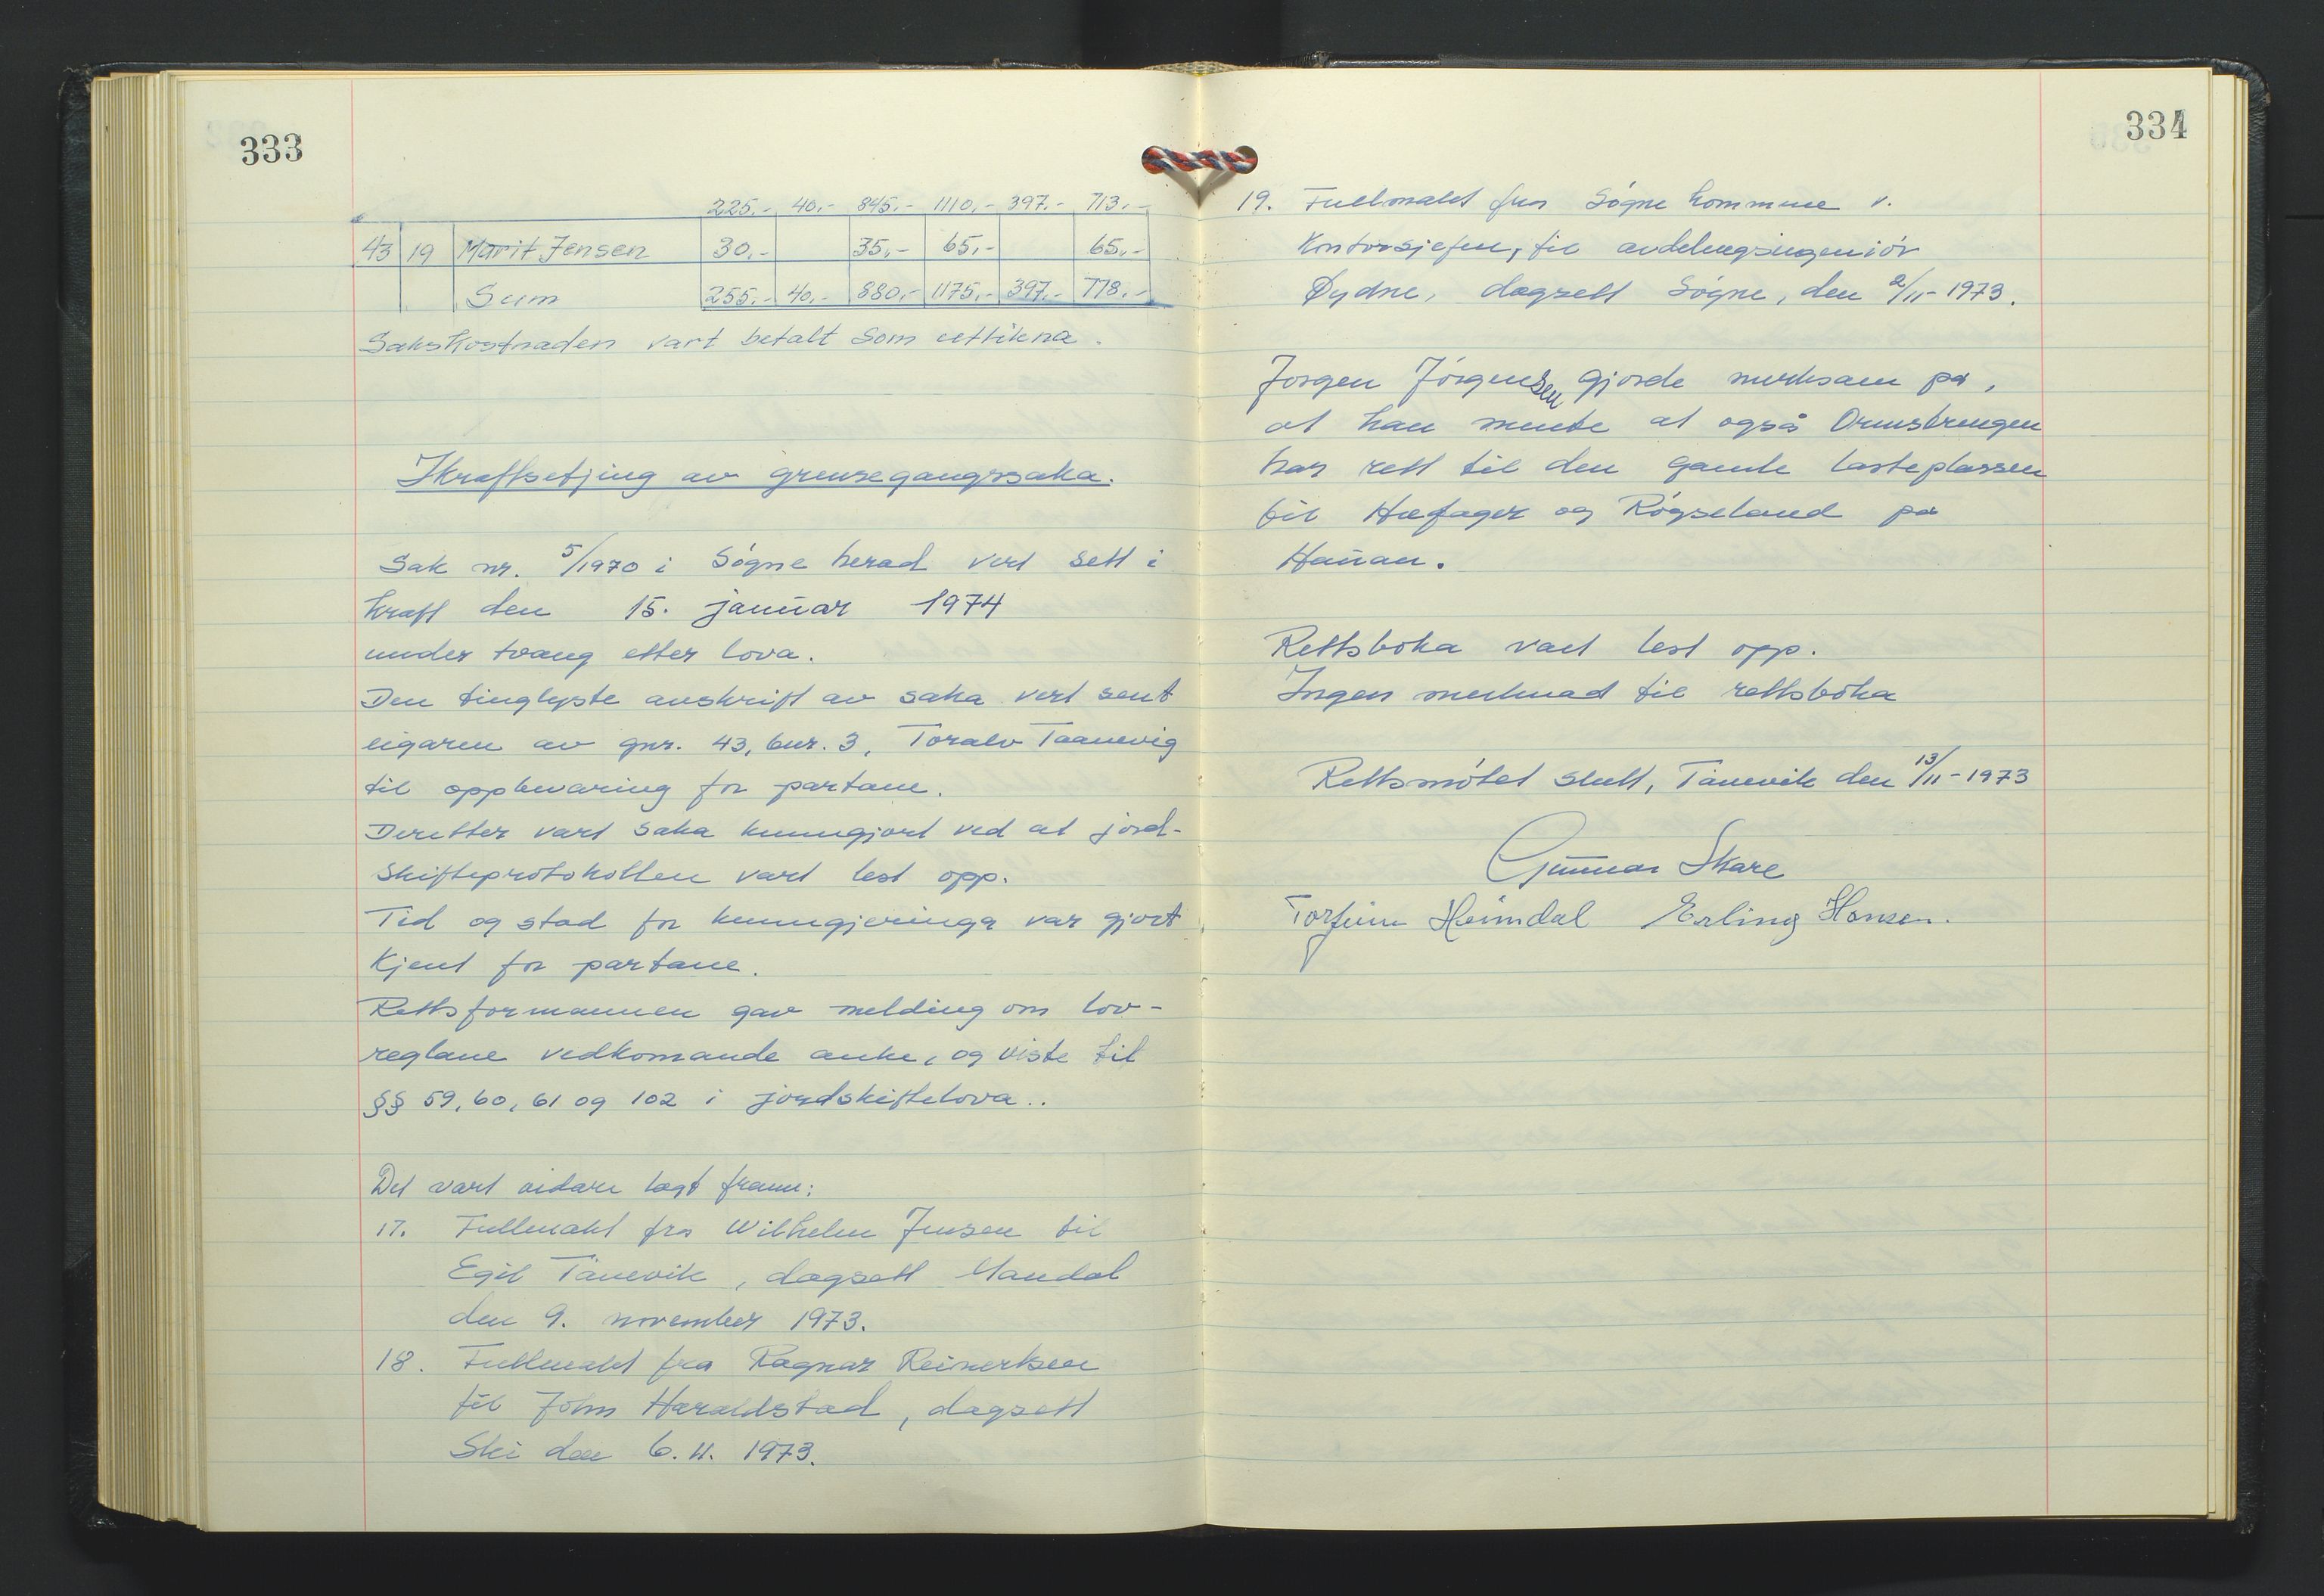 333
225.- 40,- 845,- 1110,- 397.- 713.-
43 19 Marit Jensen 30,- 35,- 65,- 65,-
Sum 255.- 40,- 880,- 1175,- 397.- 778.-
Sakskostnaden vart betalt som utlikna.
Ikraftsetjing av grensegangssaka.
Sak nr. 5/1970 i Søgne herad vert sett i
kraft den 15. januar 1974
under tvang etter lova.
Den tinglyste avskrift av saka vert sent
eigaren av gnr. 43, bnr. 3, Toralv Taanevig
til oppbevaring for partane.
Deretter vart saka kunngjort ved at jord-
skifteprotokollen vart lest opp.
Tid og stad for kunngjeringa var gjort
kjent for partane.
Rettsformannen gav melding om lov-
reglane vedkomande anke, og viste til
§§ 59, 60, 61 og 102 i jordskiftelova..
Det vart vidare lagt fram:
17. Fullmakt fra Wilhelm Jensen til
Egil Tånevik, dagsett Mandal
den 9. november 1973.
18. Fullmakt fra Ragnar Reinertsen
til John Haraldstad, dagsett
Ski den 6. 11. 1973.
334
19. Fullmakt fra Søgne kommune v.
kontorsjefen, til avdelingsingeniör
Dydne, dagsett Søgne, den 2/11-1973.
Jørgen Jørgensen gjorde merksam på,
at han mente at også Ormestrengen
har rett til den gamle lasteplassen
til Høfager og Røgseland på
Hauan.
Rettsboka vart lest opp.
Ingen merknad til rettsboka
Rettsmøtet slutt, Tånevik den 13/11-1973
Gunnar Skare
Torfinn Heimdal Erling Hansen.